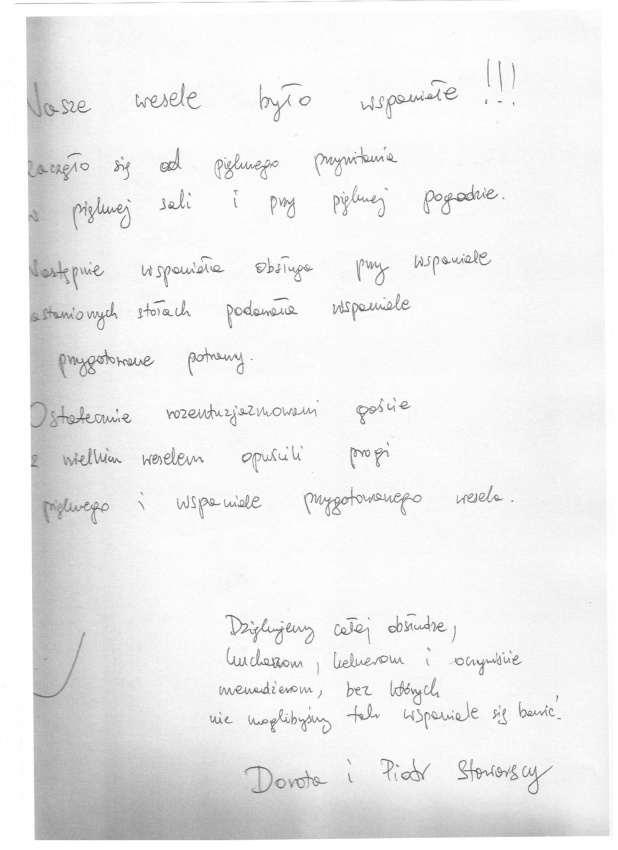 Nasze wesele było wspaniałe !!!
Zaczęło się od pięknego przywitania
w pięknej sali i przy pięknej pogodzie.
Następnie wspaniała obsługa przy wspaniale
zastawionych stołach podawała wspaniale
przygotowane potrawy.
Ostatecznie rozentuzjazmowani goście
z wielkim weselem opuścili progi
pięknego i wspaniale przygotowanego wesela.
Dziękujemy całej obsłudze,
kucharzom, kelnerom i oczywiście
menadżerom, bez których
nie moglibyśmy tak wspaniale się bawić.
Dorota i Piotr